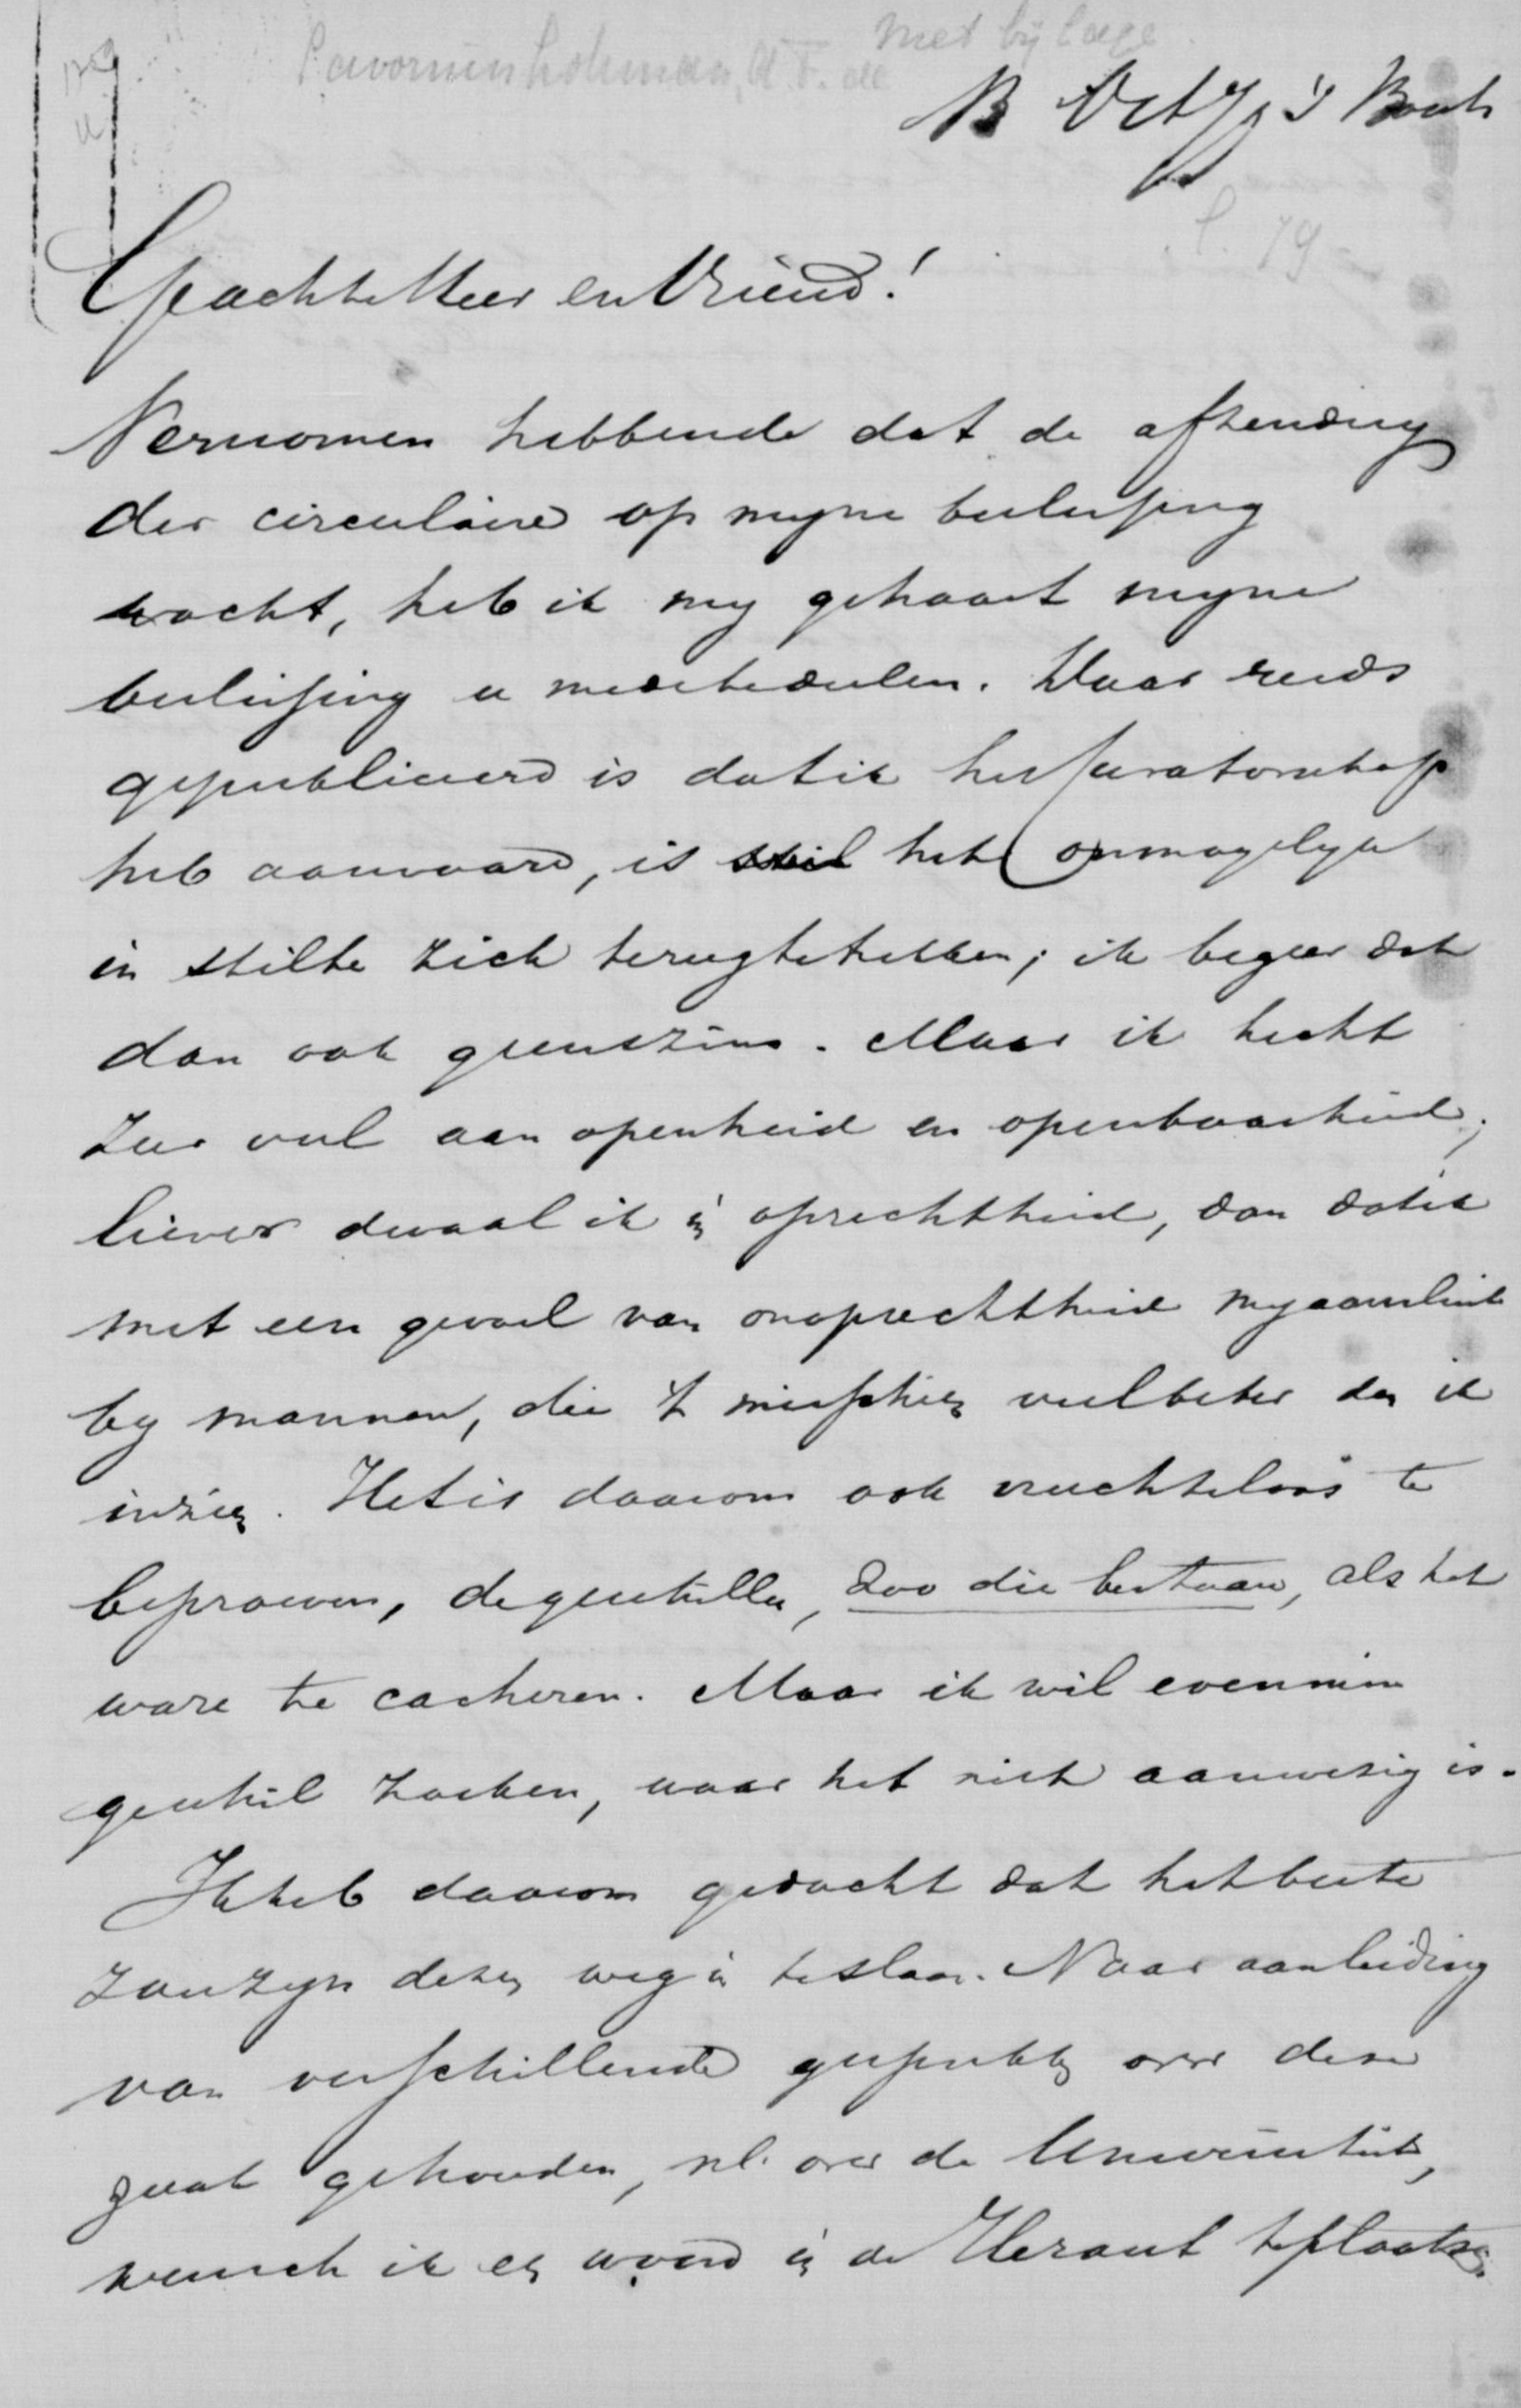 met bijlage
Savornin Lohman, A.F. de
13 Oct 79 's Bosch
79
Geachte Heer en Vriend!
Vernomen hebbende dat de afzending
der circulaire op myne beslissing
wacht, heb ik my gehaast myne
beslissing u medetedeelen. Daar reeds
gepubliceerd is dat ik het curatorschap
heb aanvaard, is het onmogelyk
in stilte zich terugtetrekken; ik begeer dat
dan ook geenszins. Maar ik hecht
zeer veel aan openheid en openbaarheid;
liever dwaal ik in oprechtheid, dan dat ik
met een gevoel van onoprechtheid my aansluit
by mannen, die 't misschien veel beter dan ik
inzien. Het is daarom ook vruchteloos te
beproeven, de geschillen, zoo die bestaan, als het
ware te cacheren. Maar ik wil evenmin
geschil zoeken, waar het niet aanwezig is.
Ik heb daarom gedacht dat het beste
zou zyn dezen weg in te slaan. Naar aanleiding
van verschillende gesprekken over deze
zaak gehouden, nl. over de Universiteit,
wensch ik een woord in de Heraut te plaatsen.